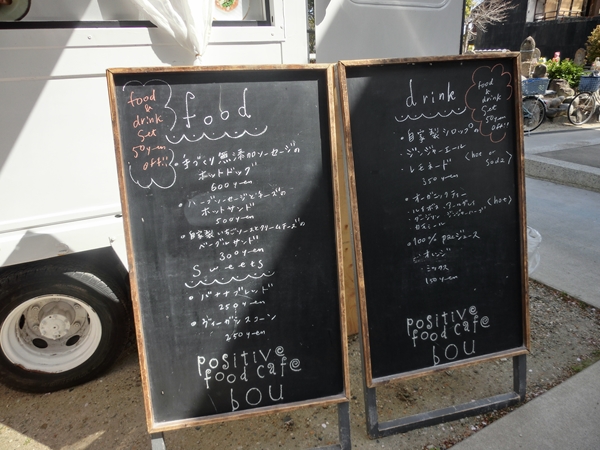 food
food
&
drink
set
50yen
off!!
・手づくり無添加ソーセージの
ホットドッグ
600yen
・ハーブソーセージとチーズの
ホットサンド
500yen
・自家製いちごソースとクリームチーズの
ベーグルサンド
300yen
sweets
・バナナブレッド
250yen
・ヴィーガンスコーン
250yen
positive
food cafe
bou
drink
food
&
drink
set
50yen
off!!
・自家製シロップの
ジンジャーエール
・レモネード
<hot
soda>
350yen
・オーガニックティー
ルイボス
<hot>
・100% pacジュース
オレンジ
ミックス
positive
food cafe
bou